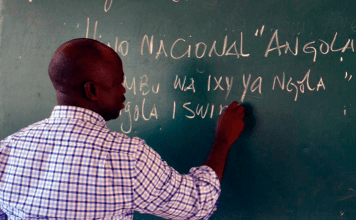 Hino Nacional "Angola
mbu wa ixy ya Ngola"
gola Iswi